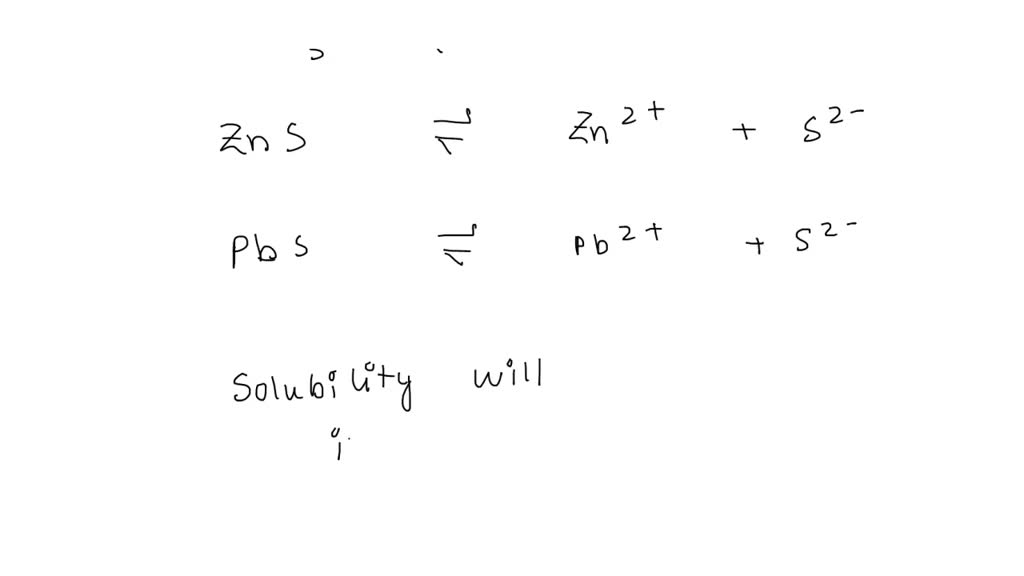 ZnS ⇌ Zn²⁺ + S²⁻
PbS ⇌ Pb²⁺ + S²⁻
Solubility will
i